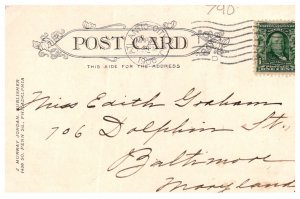 790
POST CARD
THIS SIDE FOR THE ADDRESS
Miss Edith Graham
706 Dolphin St.,
Baltimore
Maryland
J. MURRAY JORDAN, PUBLISHER